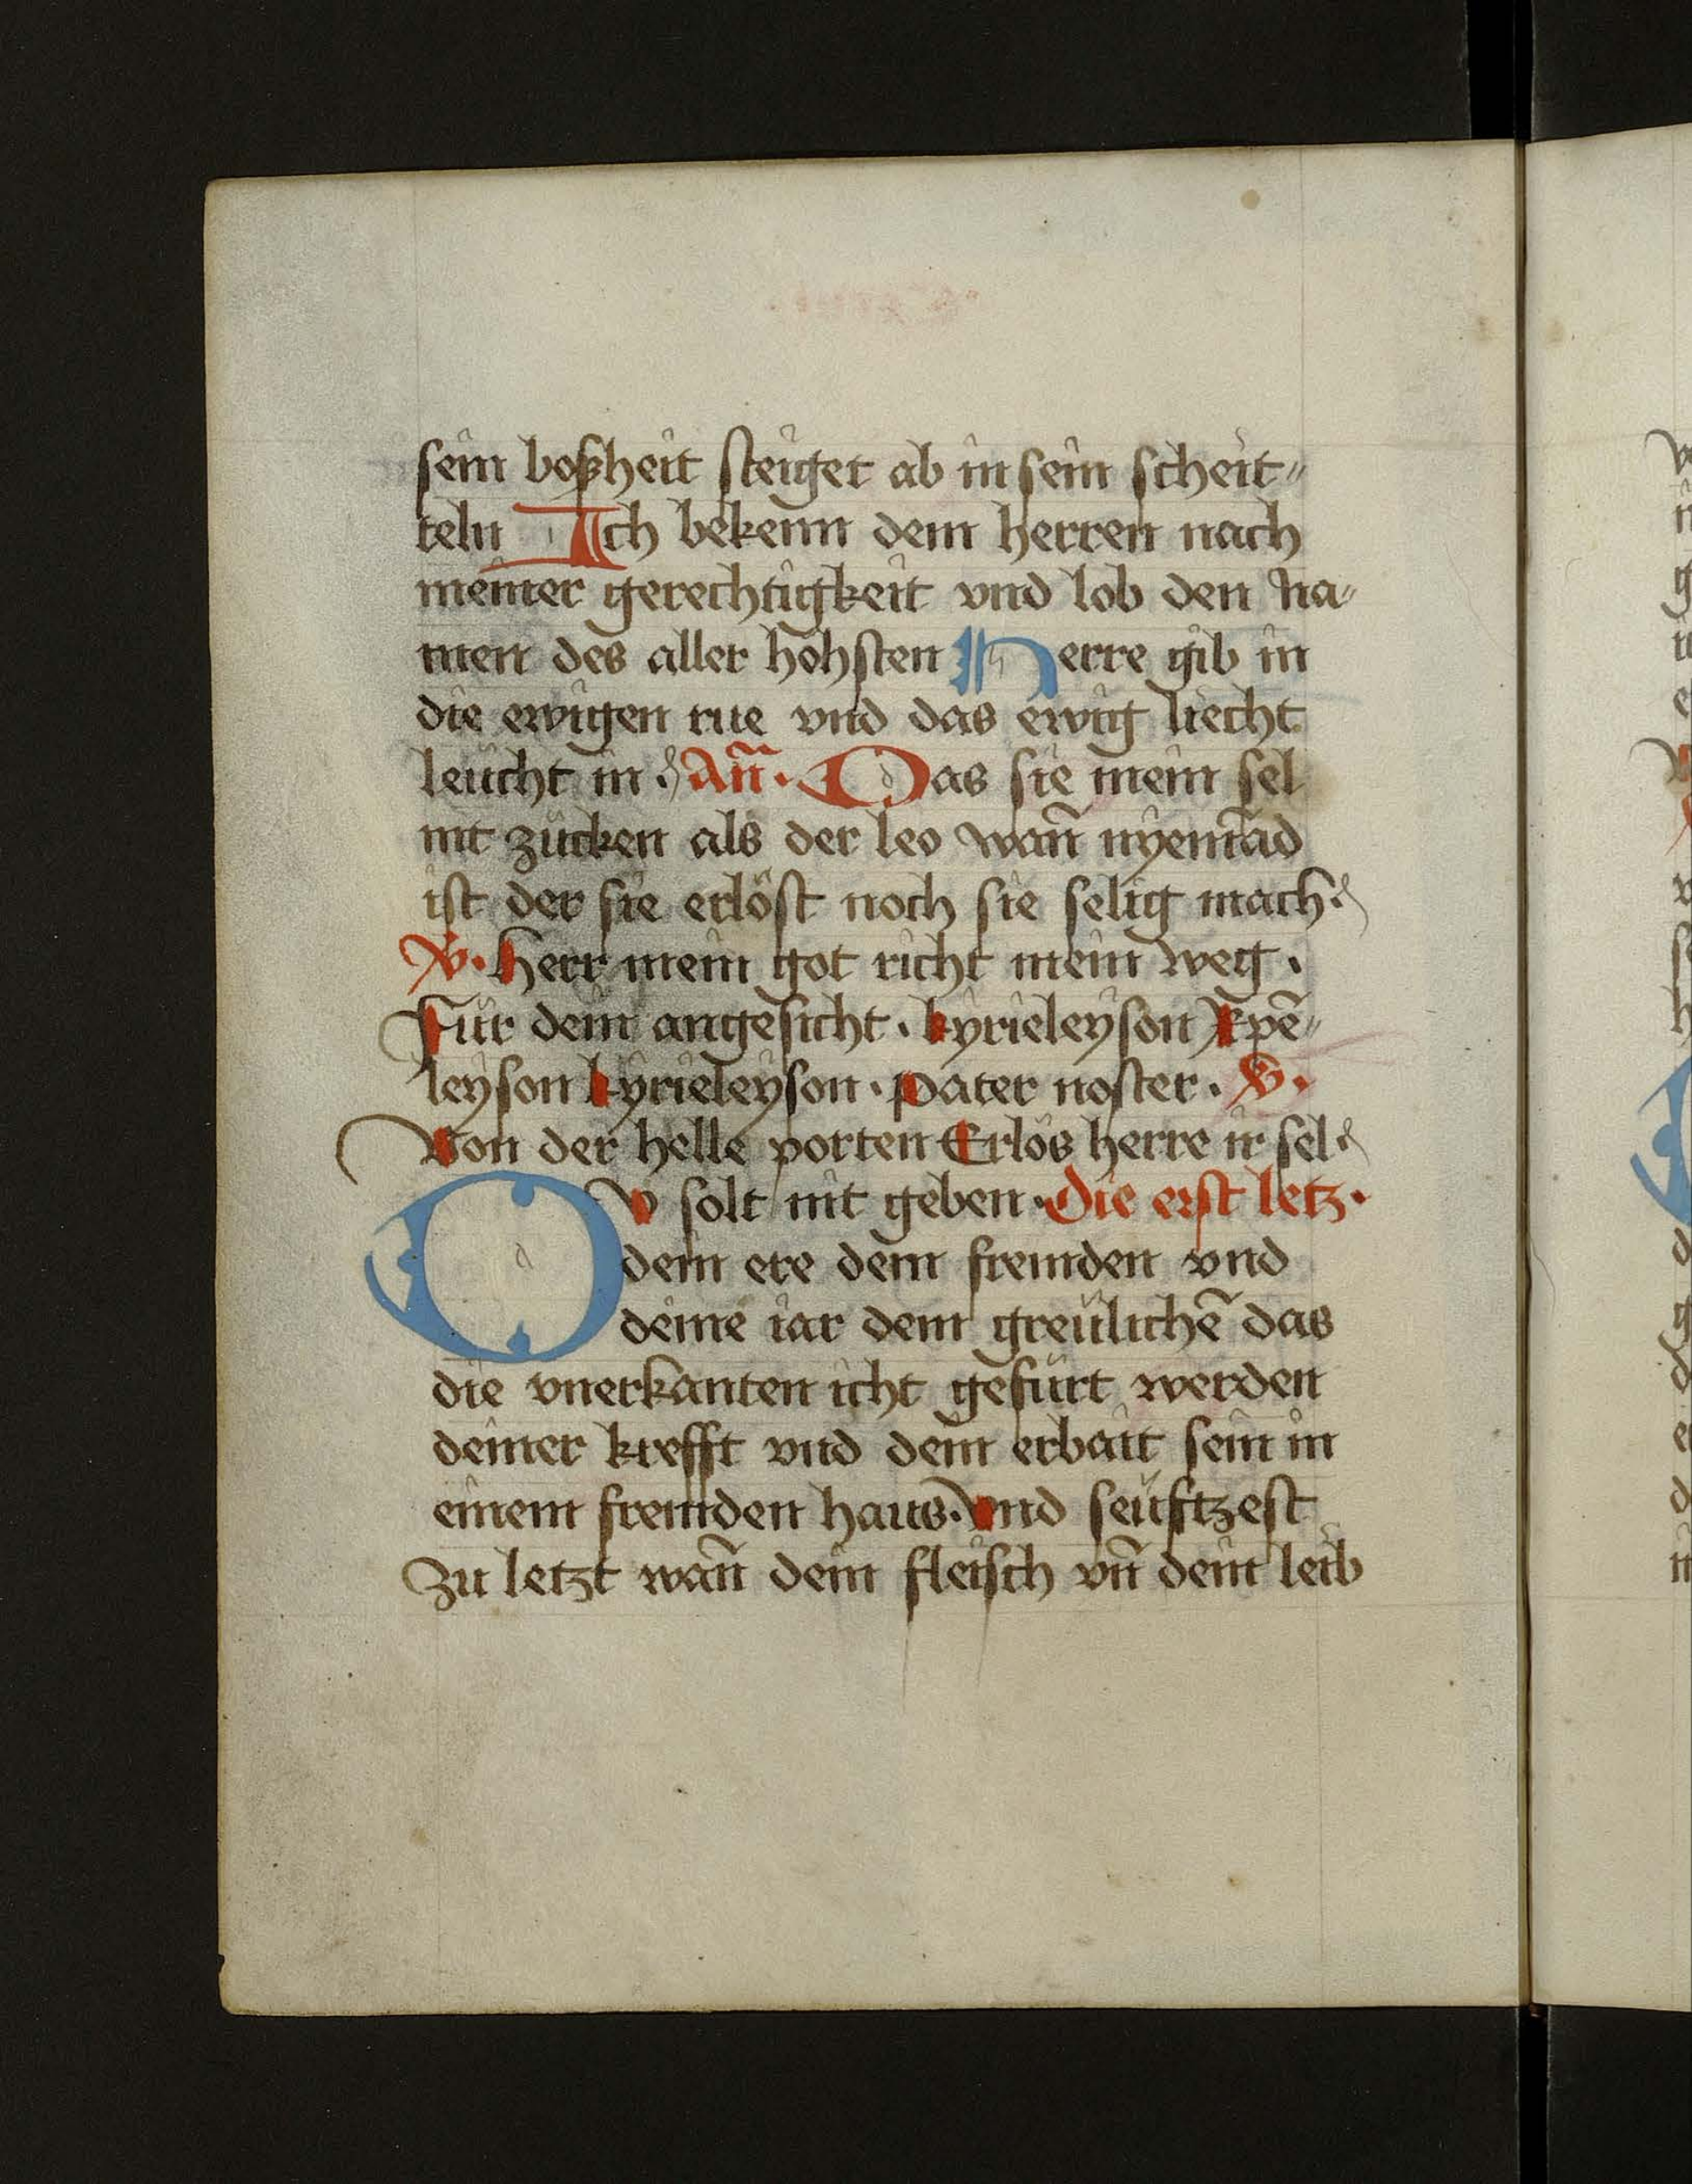 sein boßheit steiget ab in sein scheit〃
teln Ich bekenn dem herren nach
meiner gerechtigkeit vnd lob den na〃
men des aller höhsten Herre gib in
die ewigen rue vnd das ewig liecht
leücht in. Añ. Das sie mein sel
nit zücken als der leo wañ nyem̃ad
ist der sie erlöst noch sie selig mach.
V. Herr mein got richt mein weg.
Für dein angesicht. kyrieleyson Xpē〃
leyson kyrieleyson. pater noster. V.
Von der helle porten Erlös herre ir sel.
DV solt nit geben. Die erst letz.
dein ere dem fremden vnd
deine iar dem greülichē das
die vnerkanten icht gefürt werden
deiner krefft vnd dem erbait sein in
einem fremden haus. Vnd seüftzest
Zu letzt wañ dein fleisch vñ dein leib